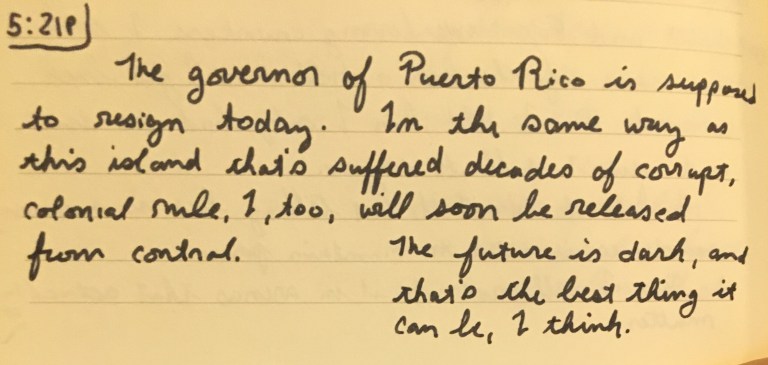 5:21P
The governor of Puerto Rico is supposed
to resign today. In the same way as
this island that's suffered decades of corrupt,
colonial rule, I, too, will soon be released
from control. The future is dark, and
that's the best thing it
can be, I think.